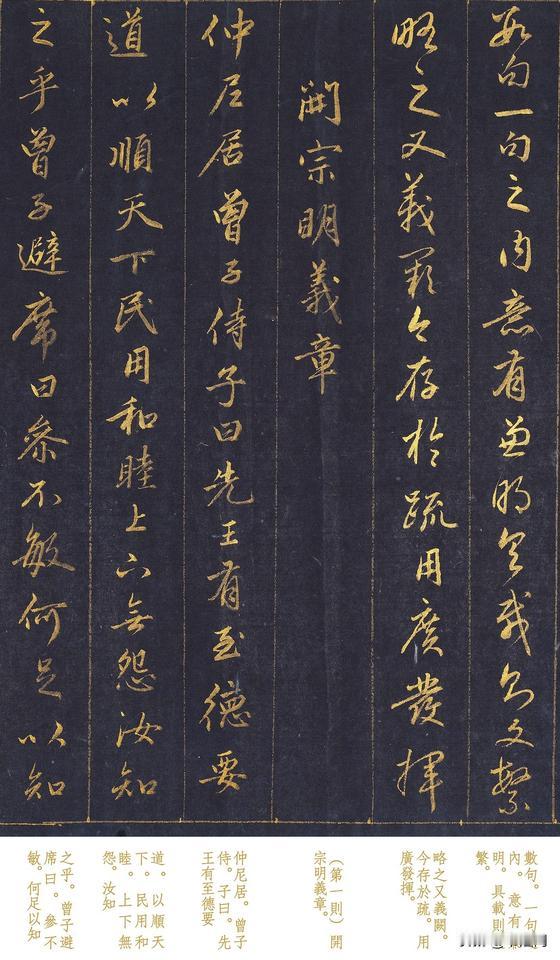 數句一句之內意有兼明具載則文繁
略之又義闕今存於疏用廣發揮
開宗明義章
仲尼居曾子侍子曰先王有至德要
道以順天下民用和睦上下無怨汝知
之乎曾子避席曰參不敏何足以知
數句。一句
內。意有
明。具載則
繁。
略之又義闕。
今存於疏。用
廣發揮。
（第一則）開
宗明義章。
仲尼居。曾子
侍。子曰。先
王有至德要
道。以順天
下。民用和
睦。上下無
怨。汝知
之乎。曾子避
席曰。參不
敏。何足以知